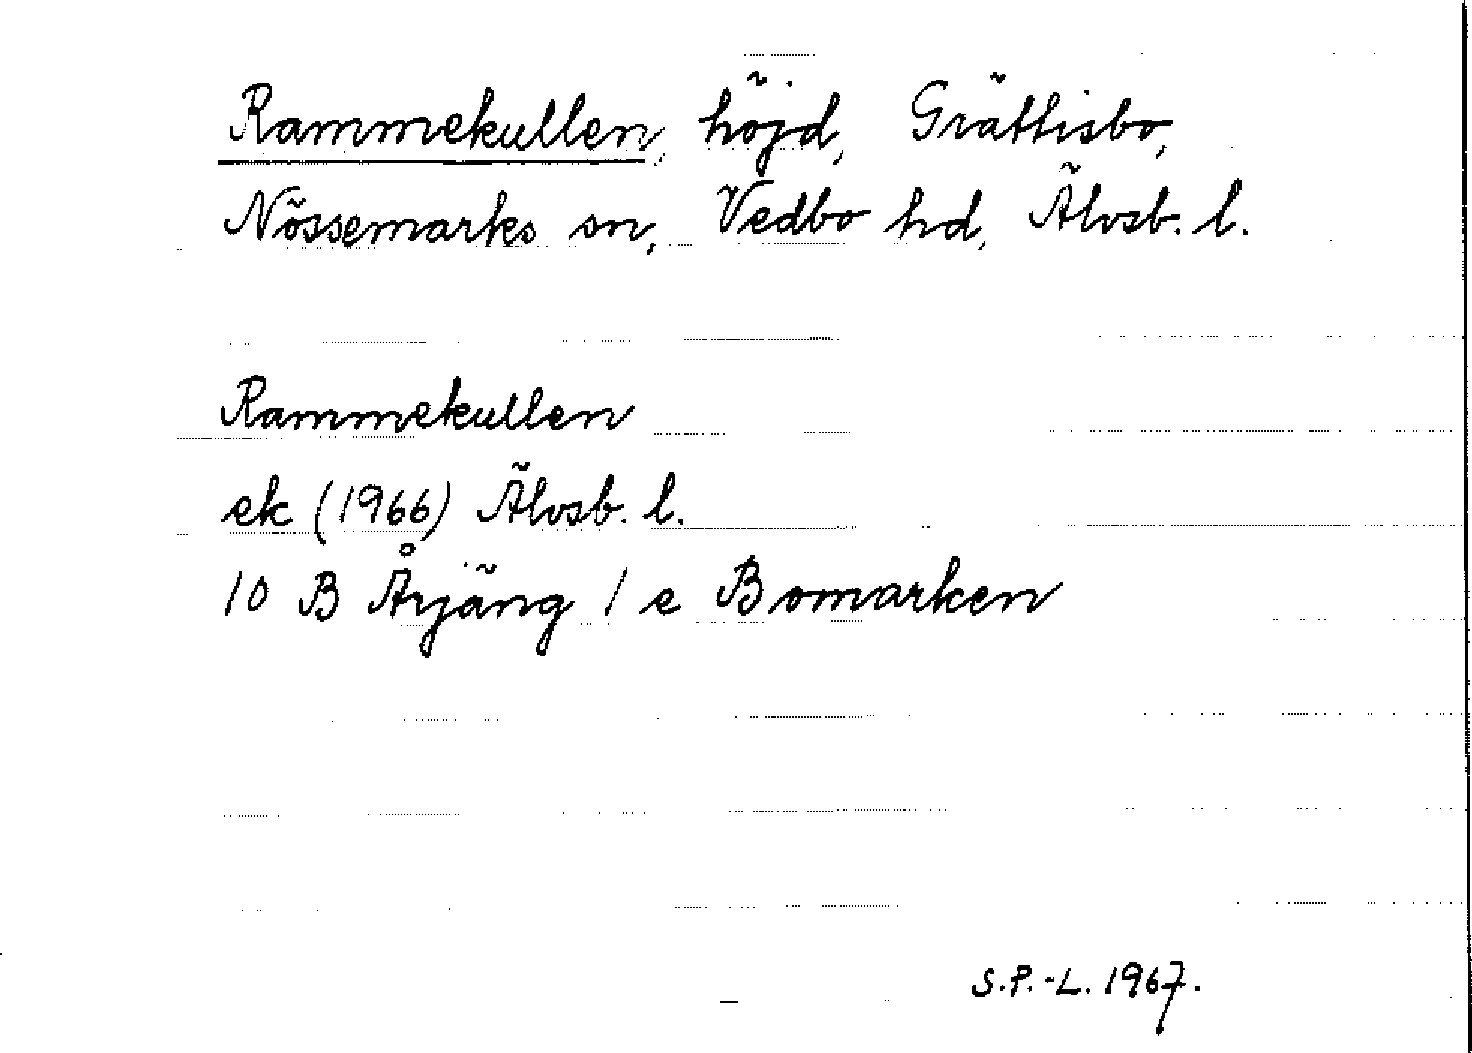 Rammekullen, höjd, Grättisbo,
Nössemarks sn, Vedbo hd, Älvsb. l.
Rammekullen
ek (1966) Älvsb. l.
10 B Årjäng 1 e Bomarken
S.P.-L. 1967.